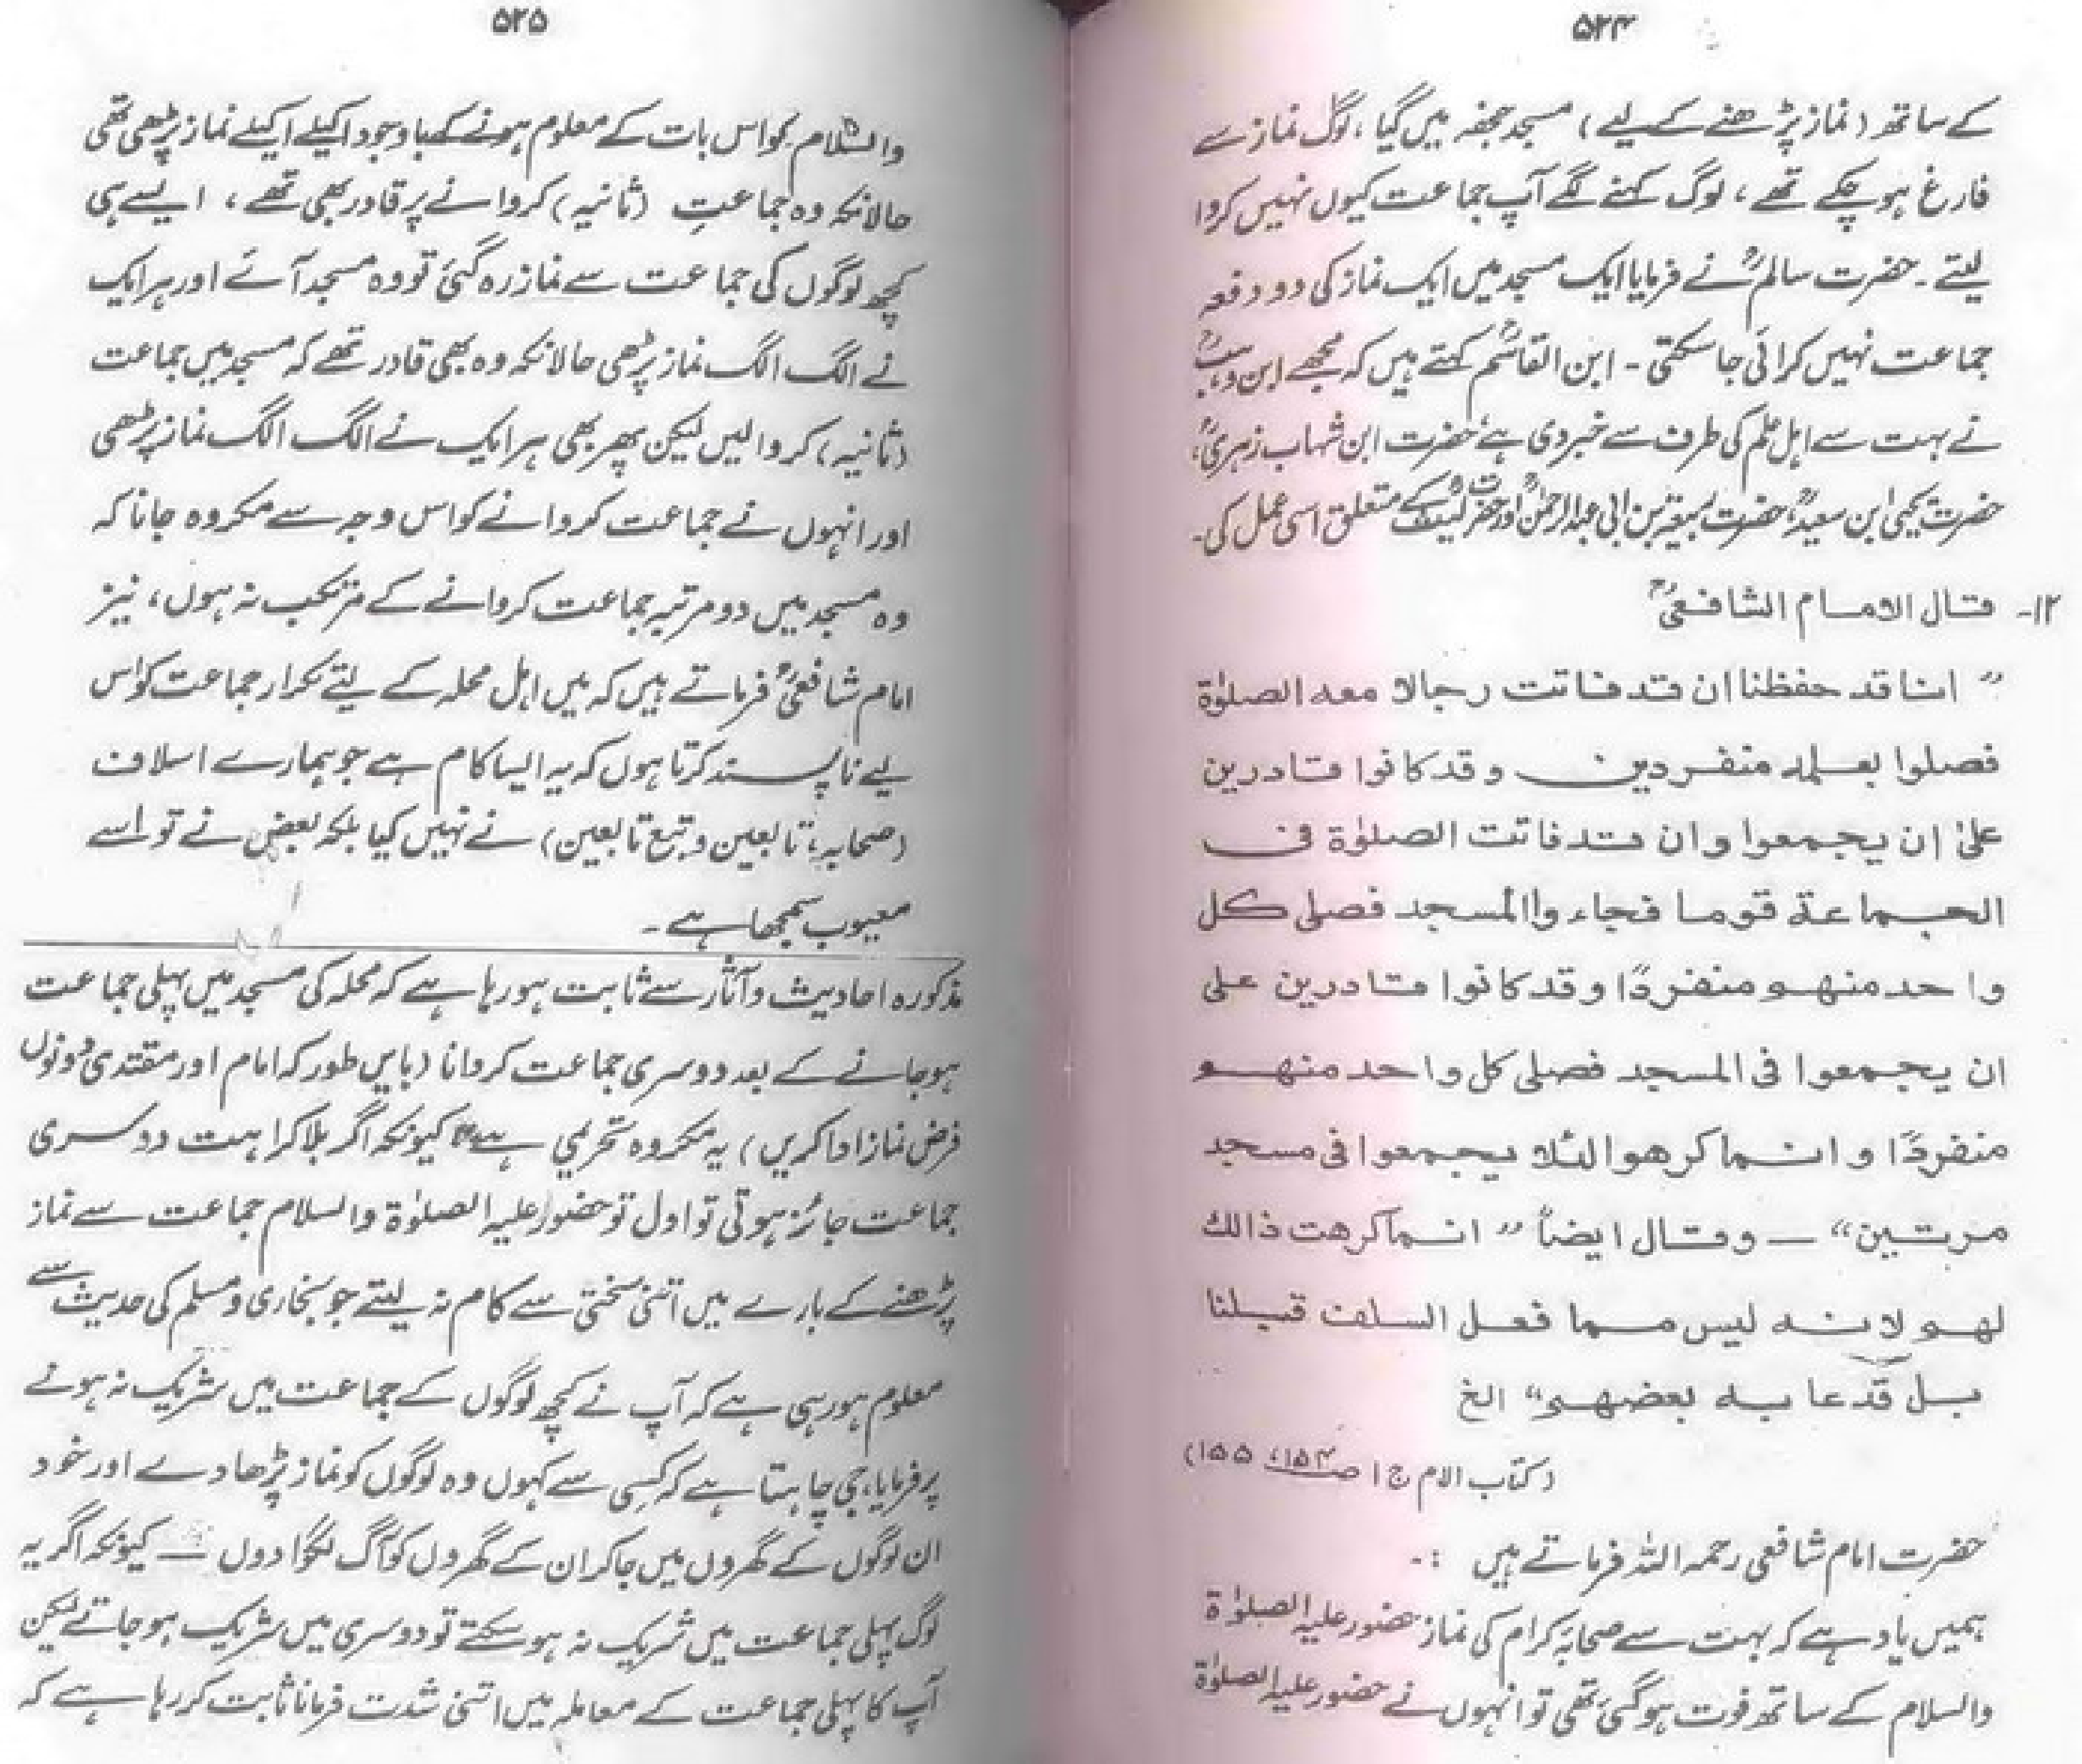 ۵۲۴
کے ساتھ (نماز پڑھنے کے لیے) مسجد جحفہ میں گیا، لوگ نماز سے
فارغ ہو چکے تھے، لوگ کہنے لگے آپ جماعت کیوں نہیں کروا
لیتے۔ حضرت سالمؒ نے فرمایا ایک مسجد میں ایک نماز کی دو دفعہ
جماعت نہیں کرائی جا سکتی۔ ابن القاسمؒ کہتے ہیں کہ مجھے ابن وہبؒ
نے بہت سے اہل علم کی طرف سے خبر دی ہے حضرت ابن شہاب زہریؒ،
حضرت یحییٰ ابن سعیدؒ، حضرت ربیعہ بن ابی عبدالرحمٰنؒ اور حضرت لیثؒ کے متعلق اسی عمل کی۔
۱۲۔ قال الامام الشافعیؒ
” انا قد حفظنا ان قد فاتت رجالا معه الصلوٰة
فصلوا بعلمه منفردین وقد کانوا قادرین
علیٰ ان یجمعوا وان قد فاتت الصلوٰة فی
الجماعة قوما فجاء والمسجد فصلی کل
واحد منهم منفردًا وقد کانوا قادرین علی
ان یجمعوا فی المسجد فصلی کل واحد منهم
منفردًا وانما کرهوا لئلا یجمعوا فی مسجد
مرتین“ — وقال ایضاً ” انما کرهت ذالك
لهم لانه لیس مما فعل السلف قبلنا
بل قد عابه بعضهم“ الخ
(کتاب الام ج ۱ ص ۱۵۴، ۱۵۵)
حضرت امام شافعی رحمہ اللہ فرماتے ہیں :۔
ہمیں یاد ہے کہ بہت سے صحابہ کرام کی نماز حضور علیہ الصلوٰة
والسلام کے ساتھ فوت ہو گئی تھی تو انہوں نے حضور علیہ الصلوٰة
۵۲۵
والسلام کو اس بات کے معلوم ہونے کے باوجود اکیلے اکیلے نماز پڑھی تھی
حالانکہ وہ جماعتِ (ثانیہ) کروانے پر قادر بھی تھے، ایسے ہی
کچھ لوگوں کی جماعت سے نماز رہ گئی تو وہ مسجد آئے اور ہر ایک
نے الگ الگ نماز پڑھی حالانکہ وہ بھی قادر تھے کہ مسجد میں جماعت
(ثانیہ) کروا لیں لیکن پھر بھی ہر ایک نے الگ الگ نماز پڑھی
اور انہوں نے جماعت کروانے کو اس وجہ سے مکروہ جانا کہ
وہ مسجد میں دو مرتبہ جماعت کروانے کے مرتکب نہ ہوں، نیز
امام شافعیؒ فرماتے ہیں کہ میں اہل محلہ کے لیے تکرار جماعت کو اس
لیے ناپسند کرتا ہوں کہ یہ ایسا کام ہے جو ہمارے اسلاف
(صحابہ، تابعین و تبع تابعین) نے نہیں کیا بلکہ بعض نے تو اسے
معیوب سمجھا ہے۔
مذکورہ احادیث و آثار سے ثابت ہو رہا ہے کہ محلہ کی مسجد میں پہلی جماعت
ہو جانے کے بعد دوسری جماعت کروانا (بایں طور کہ امام اور مقتدی دونوں
فرض نماز ادا کریں) یہ مکروہ تحریمی ہے کیونکہ اگر بلا کراہت دوسری
جماعت جائز ہوتی تو اول تو حضور علیہ الصلوٰة والسلام جماعت سے نماز
پڑھنے کے بارے میں اتنی سختی سے کام نہ لیتے جو بخاری و مسلم کی حدیث سے
معلوم ہو رہی ہے کہ آپ نے کچھ لوگوں کے جماعت میں شریک نہ ہونے
پر فرمایا، جی چاہتا ہے کہ کسی سے کہوں وہ لوگوں کو نماز پڑھا دے اور خود
ان لوگوں کے گھروں میں جا کر ان کے گھروں کو آگ لگوا دوں — کیونکہ اگر یہ
لوگ پہلی جماعت میں شریک نہ ہو سکتے تو دوسری میں شریک ہو جاتے لیکن
آپ کا پہلی جماعت کے معاملہ میں اتنی شدت فرمانا ثابت کر رہا ہے کہ